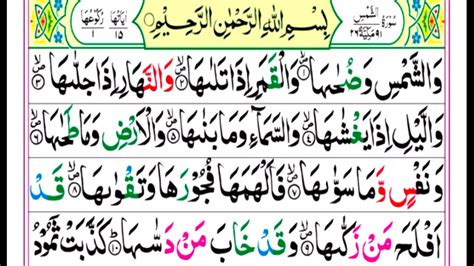 سُوْرَةُ الشَّمْسِ ٩١ مَكِّيَّةٌ ٢٦
بِسْمِ اللّٰهِ الرَّحْمٰنِ الرَّحِيْمِ
اٰيَاتُهَا ١٥ رُكُوْعُهَا ١
وَالشَّمْسِ وَضُحٰىهَا ۝١ وَالْقَمَرِ اِذَا تَلٰىهَا ۝٢ وَالنَّهَارِ اِذَا جَلّٰىهَا ۝٣
وَالَّيْلِ اِذَا يَغْشٰىهَا ۝٤ وَالسَّمَآءِ وَمَا بَنٰىهَا ۝٥ وَالْاَرْضِ وَمَا طَحٰىهَا ۝٦
وَنَفْسٍ وَّمَا سَوّٰىهَا ۝٧ فَاَلْهَمَهَا فُجُوْرَهَا وَتَقْوٰىهَا ۝٨ قَدْ
اَفْلَحَ مَنْ زَكّٰىهَا ۝٩ وَقَدْ خَابَ مَنْ دَسّٰىهَا ۝١٠ كَذَّبَتْ ثَمُوْدُ